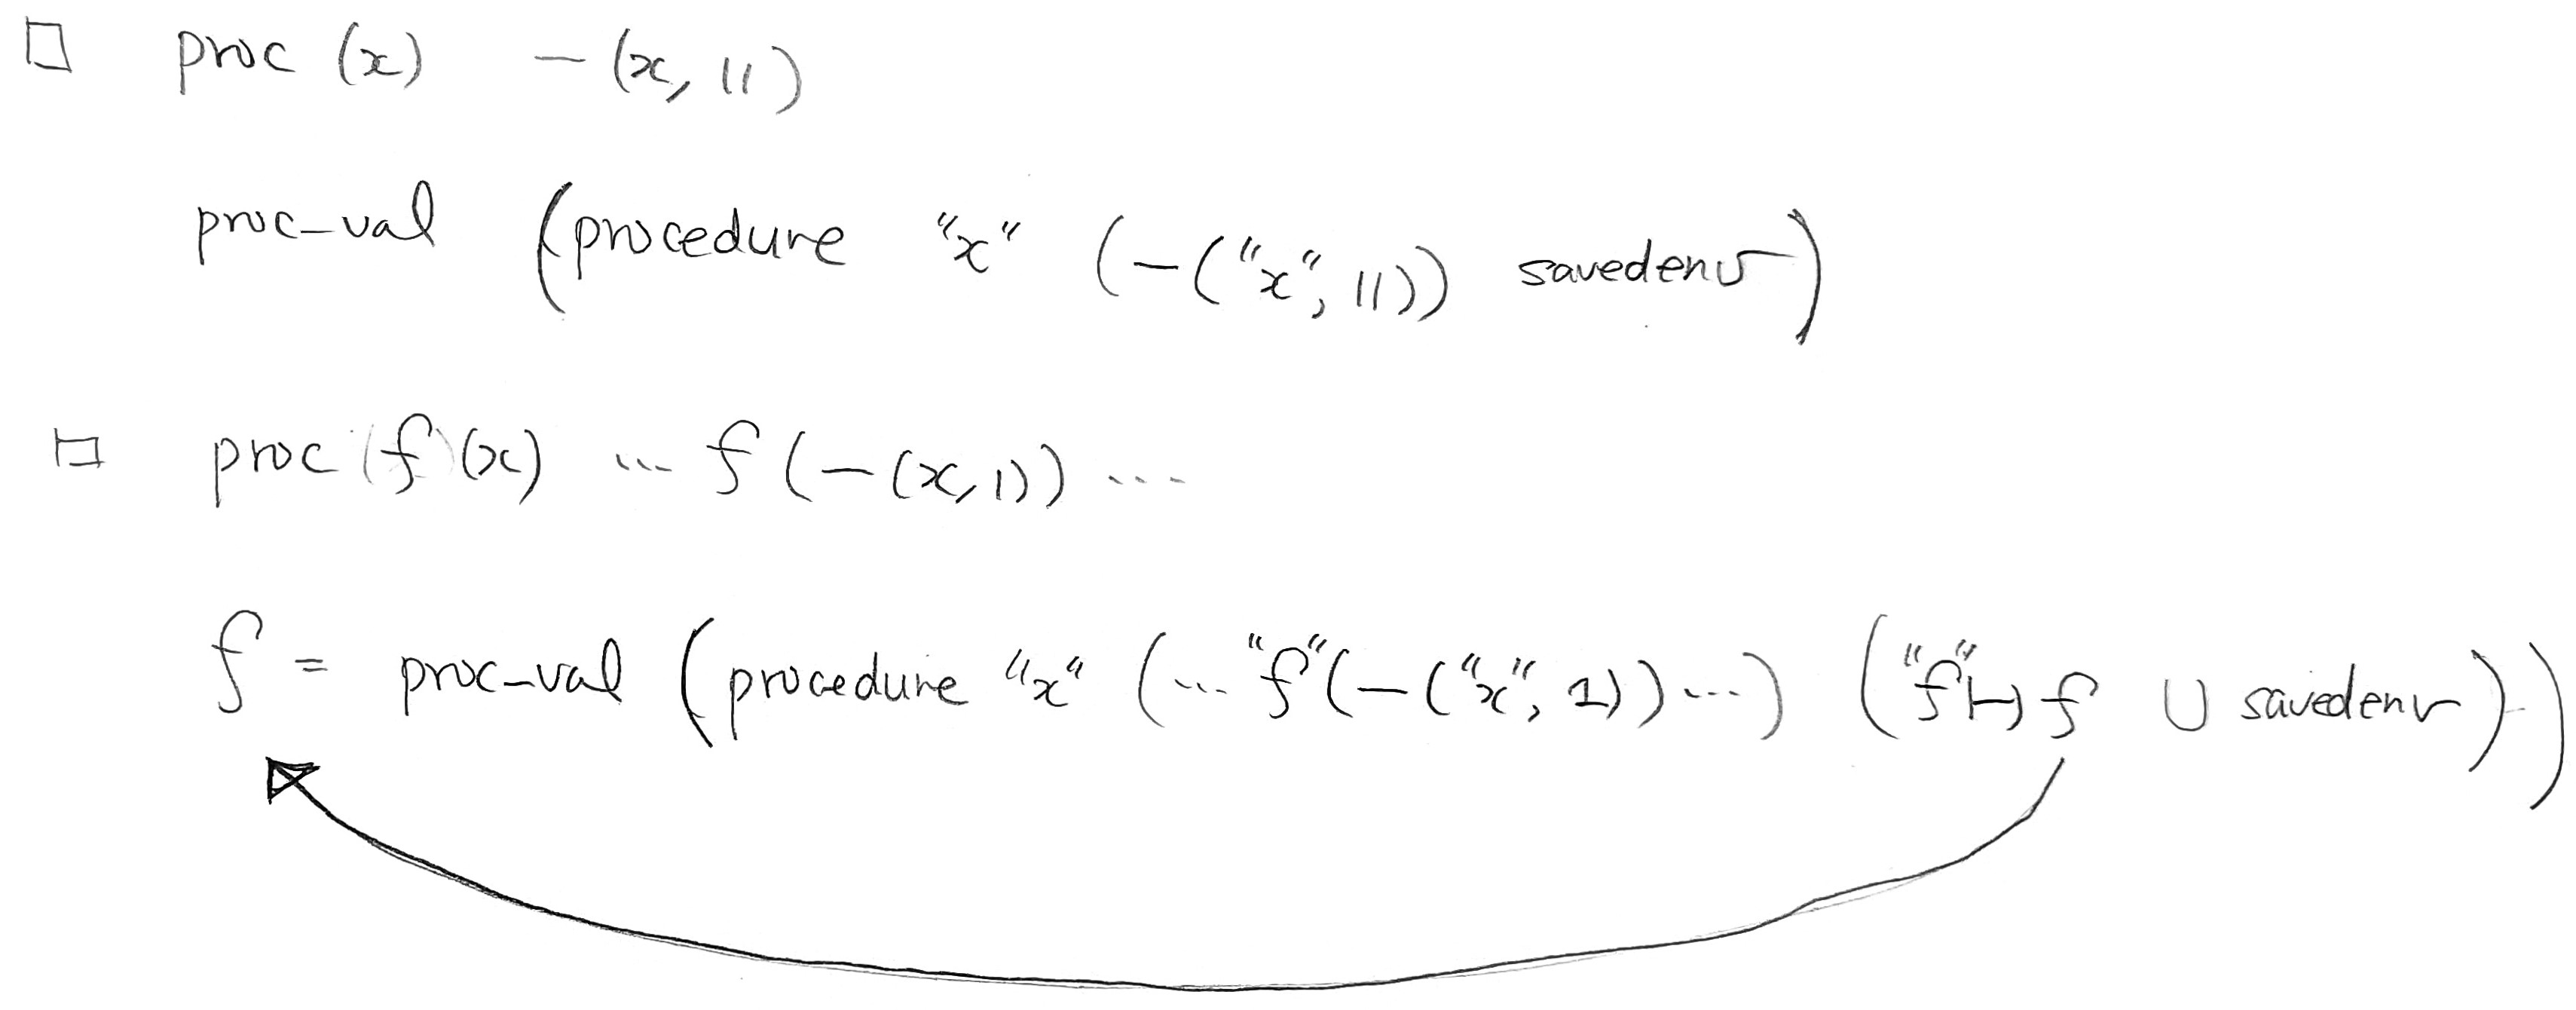 □ proc (x) - (x, 11)
proc-val (procedure "x" (-("x", 11)) savedenv)
□ proc (f) (x) ... f (-(x, 1)) ...
f = proc-val (procedure "x" (... "f" (-("x", 1)) ...) ("f" ↦ f ∪ savedenv))